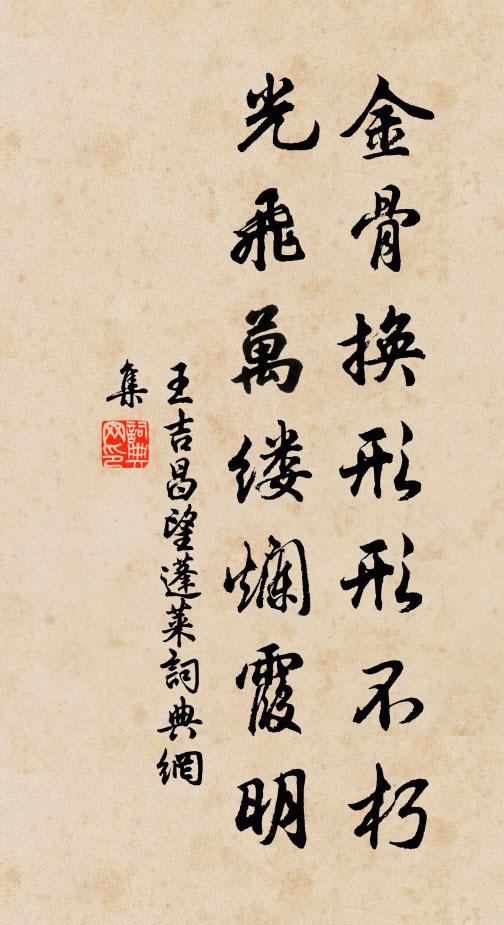 金骨換形形不朽
光飛萬缕爛霞明
王吉昌望蓬萊詞典網
集
詞典
网印